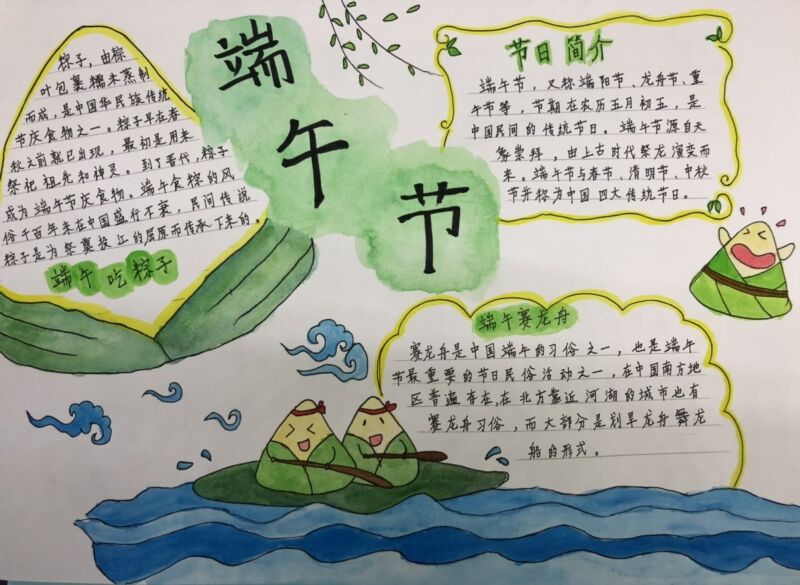 端午节
粽子，由粽
叶包裹糯米蒸制
而成，是中国华民族传统
节庆食物之一。粽子早在春
秋之前就已出现，最初是用来
祭祀祖先和神灵。到了晋代，粽子
成为端午节庆食物。端午食粽的风
俗千百年来在中国盛行不衰，民间传说
粽子是为祭奠投江的屈原而传承下来的。
端午吃粽子
节日简介
端午节，又称端阳节、龙舟节、重
午节等，节期在农历五月初五，是
中国民间的传统节日。端午节源自天
象崇拜，由上古时代祭龙演变而
来。端午节与春节、清明节、中秋
节并称为中国四大传统节日。
端午赛龙舟
赛龙舟是中国端午的习俗之一，也是端午
节最重要的节日民俗活动之一，在中国南方地
区普遍存在，在北方靠近河湖的城市也有
赛龙舟习俗，而大部分是划旱龙舟舞龙
船的形式。